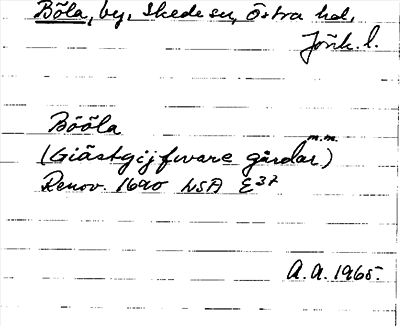 Böla, by, Skede sn, Östra hd,
Jönk. l.
Bööla
m.m.
(Giästgijfware gårdar)
Renov. 1690 LSA E37
A.A. 1965